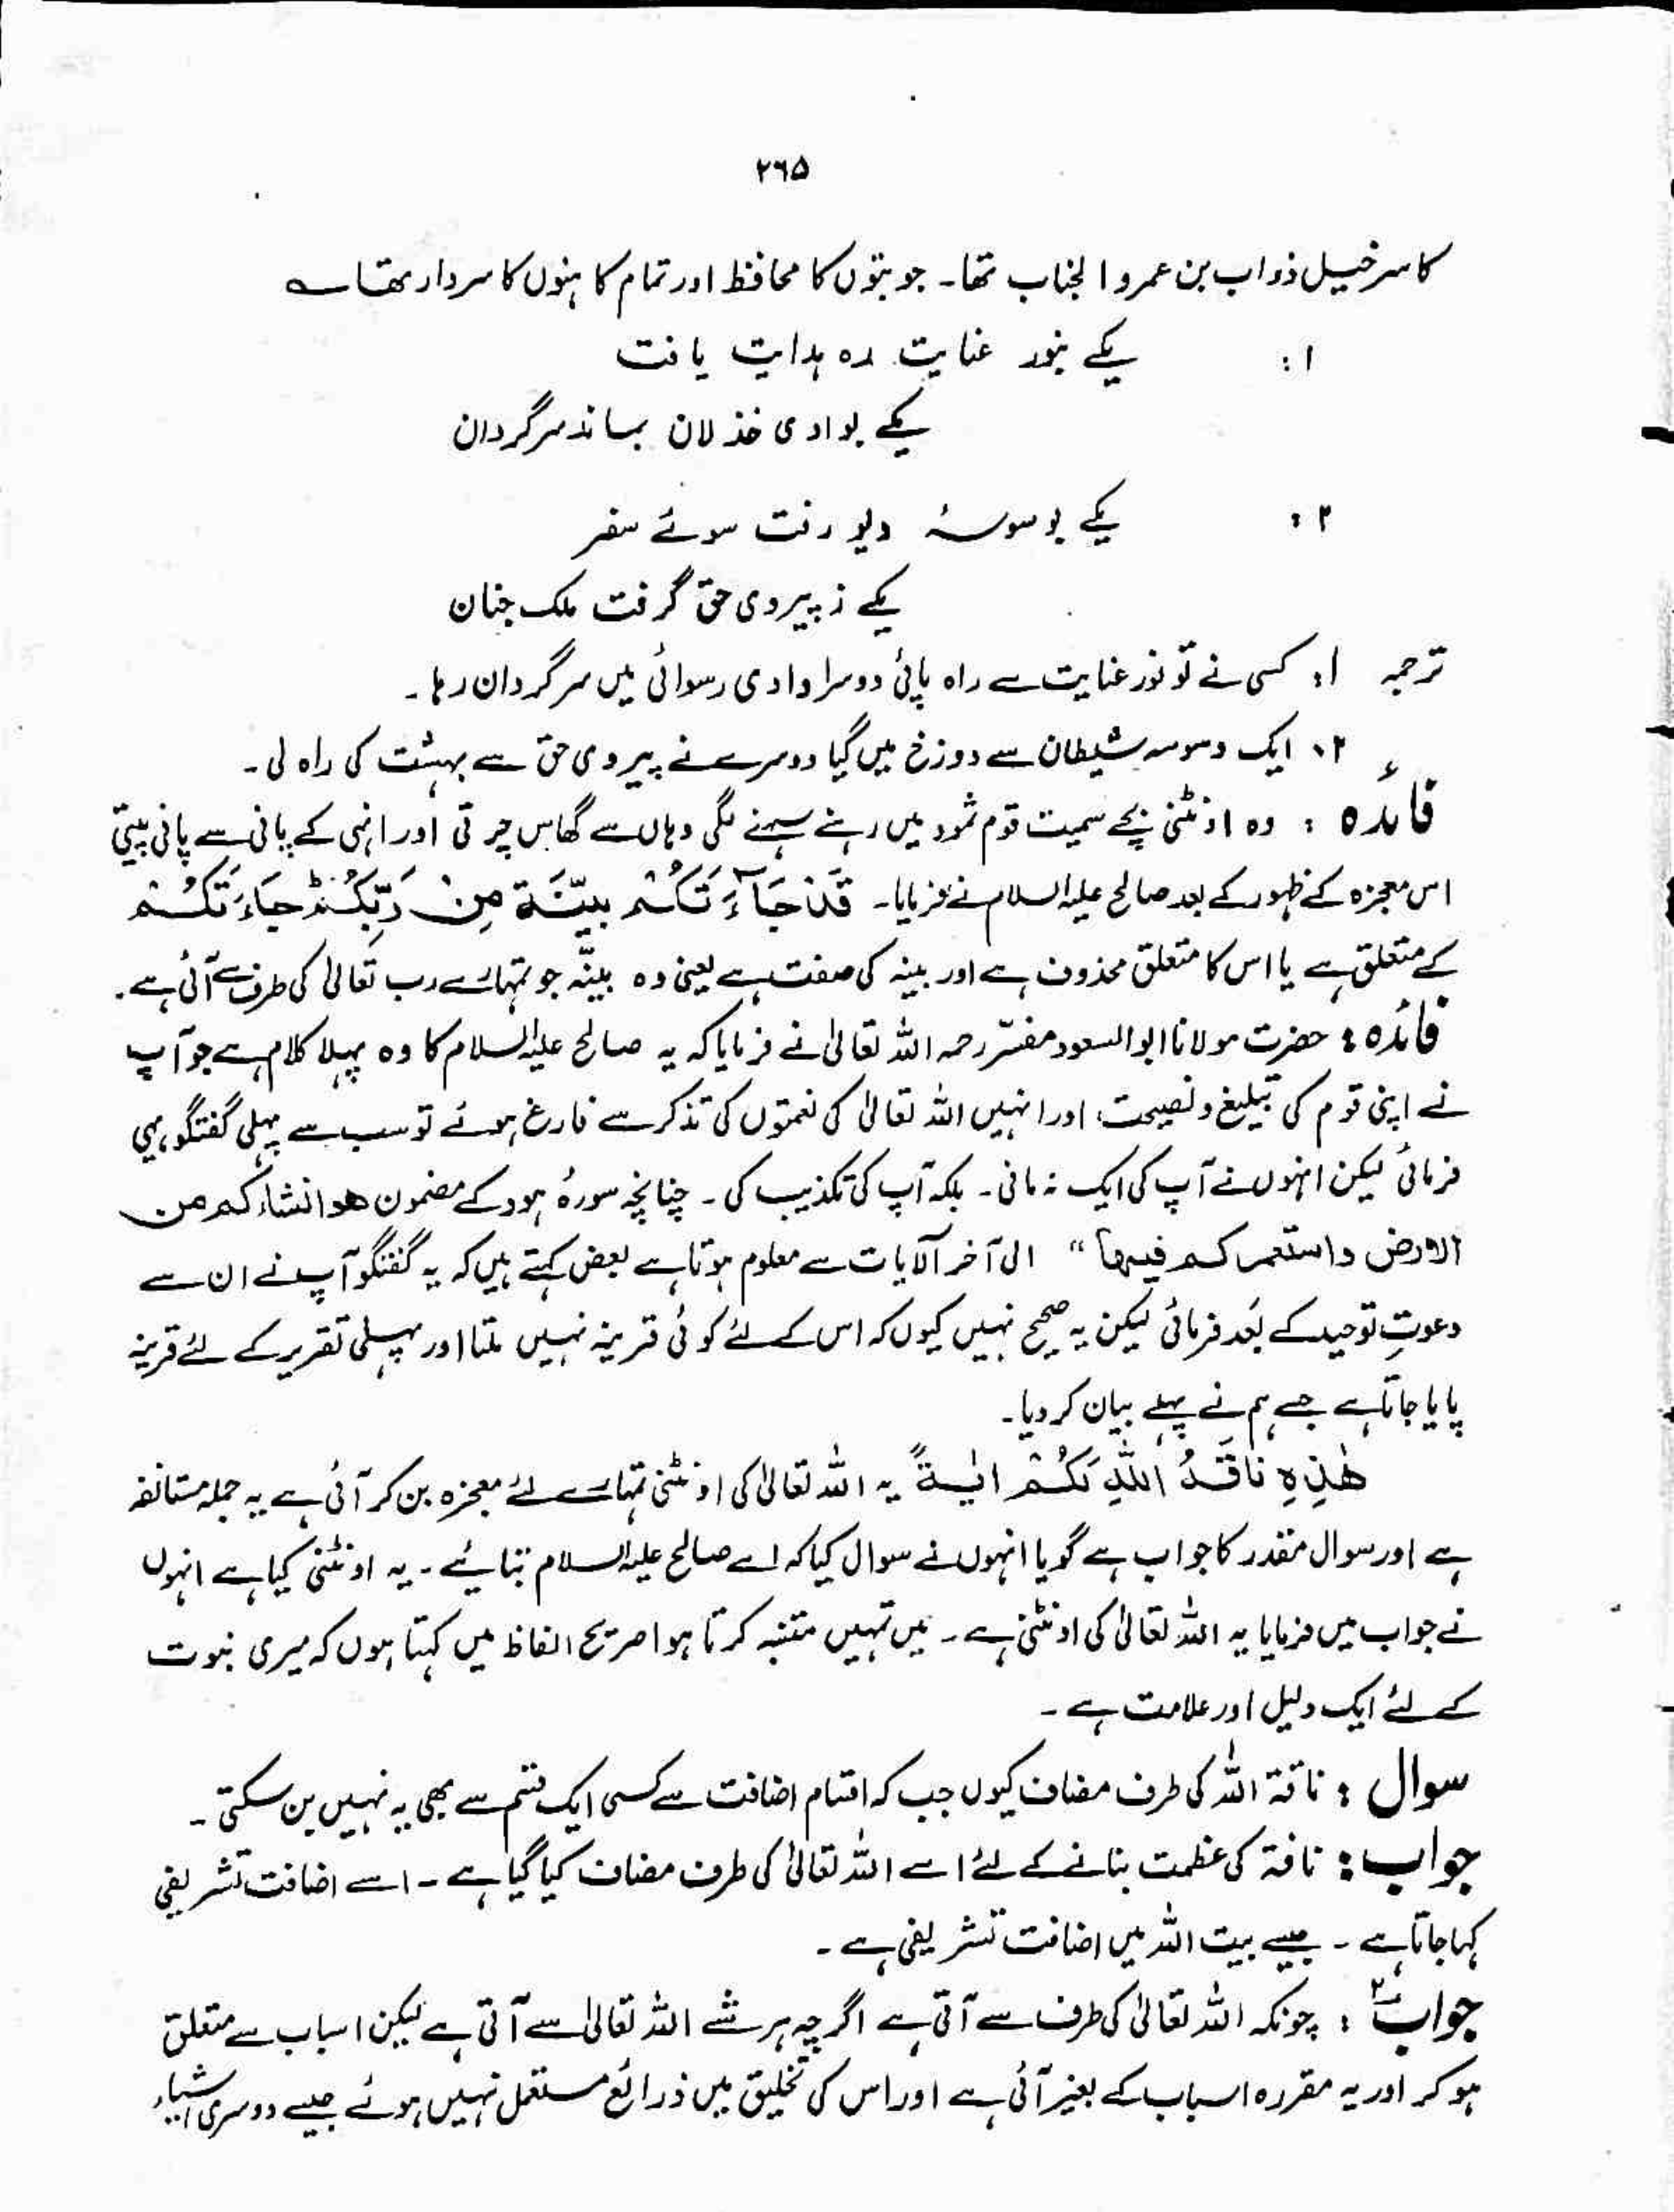 ۲۶۵
کا سرخیل ذواب بن عمرو الجناب تھا۔ جو بتوں کا محافظ اور تمام کاہنوں کا سردار تھا ؎
۱: یکے بنور عنایت رہ ہدایت یافت
یکے بوادی خذلان بماند سرگردان
۲: یکے بوسوسۂ دیو رفت سوئے سقر
یکے ز پیروی حق گرفت ملک جنان
ترجمہ ۱: کسی نے تو نور عنایت سے راہ پائی دوسرا وادی رسوائی میں سرگردان رہا۔
۲۔ ایک وسوسہ شیطان سے دوزخ میں گیا دوسرے نے پیروی حق سے بہشت کی راہ لی۔
فائدہ : وہ اونٹنی بچے سمیت قوم ثمود میں رہنے سہنے لگی وہاں سے گھاس چرتی اور انہی کے پانی سے پانی پیتی
اس معجزہ کے ظہور کے بعد صالح علیہ السلام نے فرمایا۔ قَدْ جَآءَتْكُمْ بَيِّنَةٌ مِنْ رَبِّكُمْ جَاءَتْكُمْ
کے متعلق ہے یا اس کا متعلق محذوف ہے اور بینہ کی صفت ہے یعنی وہ بینّہ جو تمہارے رب تعالیٰ کی طرف سے آئی ہے۔
فائدہ : حضرت مولانا ابوالسعود مفسّر رحمہ اللہ تعالیٰ نے فرمایا کہ یہ صالح علیہ السلام کا وہ پہلا کلام ہے جو آپ
نے اپنی قوم کی تبلیغ و نصیحت اور انہیں اللہ تعالیٰ کی نعمتوں کی تذکر سے فارغ ہوئے تو سب سے پہلی گفتگو یہی
فرمائی لیکن انہوں نے آپ کی ایک نہ مانی۔ بلکہ آپ کی تکذیب کی۔ چنانچہ سورۂ ہود کے مضمون هو انشاء كم من
الارض واستعمر كم فيها“ الی آخر الآیات سے معلوم ہوتا ہے بعض کہتے ہیں کہ یہ گفتگو آپ نے ان سے
دعوتِ توحید کے بعد فرمائی لیکن یہ صحیح نہیں کیوں کہ اس کے لئے کوئی قرینہ نہیں ملتا اور پہلی تقریر کے لئے قرینہ
پایا جاتا ہے جسے ہم نے پہلے بیان کر دیا۔
هٰذِهِ نَاقَةُ اللّٰهِ لَكُمْ اٰيَةً یہ اللہ تعالیٰ کی اونٹنی تمہارے لئے معجزہ بن کر آئی ہے یہ جملہ مستانفہ
ہے اور سوال مقدر کا جواب ہے گویا انہوں نے سوال کیا کہ اے صالح علیہ السلام بتائیے۔ یہ اونٹنی کیا ہے انہوں
نے جواب میں فرمایا یہ اللہ تعالیٰ کی اونٹنی ہے۔ میں تمہیں متنبہ کرتا ہوا صریح الفاظ میں کہتا ہوں کہ میری نبوت
کے لئے ایک دلیل اور علامت ہے۔
سوال : ناقۃ اللہ کی طرف مضاف کیوں جب کہ اقسام اضافت سے کسی ایک قسم سے بھی یہ نہیں بن سکتی۔
جواب : ناقۃ کی عظمت بتانے کے لئے اسے اللہ تعالیٰ کی طرف مضاف کیا گیا ہے۔ اسے اضافت تشریفی
کہا جاتا ہے۔ جیسے بیت اللہ میں اضافت تشریفی ہے۔
جواب۲ : چونکہ اللہ تعالیٰ کی طرف سے آتی ہے اگرچہ ہر شے اللہ تعالیٰ سے آتی ہے لیکن اسباب سے متعلق
ہو کر اور یہ مقررہ اسباب کے بغیر آئی ہے اور اس کی تخلیق میں ذرائع مستعمل نہیں ہوئے جیسے دوسری اشیاء